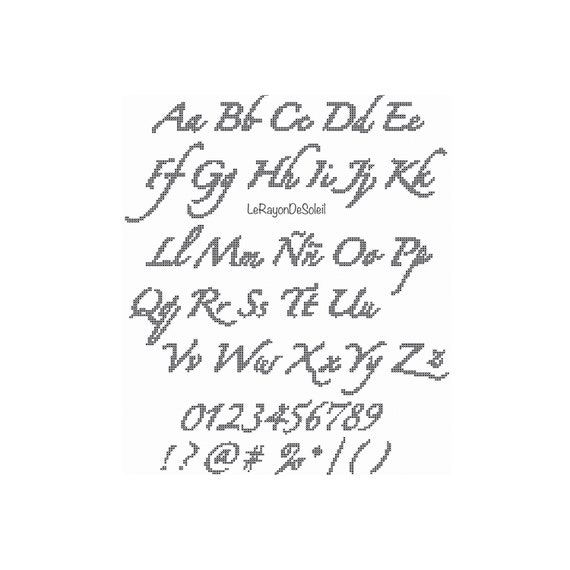 Aa Bb Cc Dd Ee
Ff Gg Hh Ii Jj Kk
LeRayonDeSoleil
Ll Mm Ññ Oo Pp
Qq Rr Ss Tt Uu
Vv Ww Xx Yy Zz
0123456789
!?@# %*/()